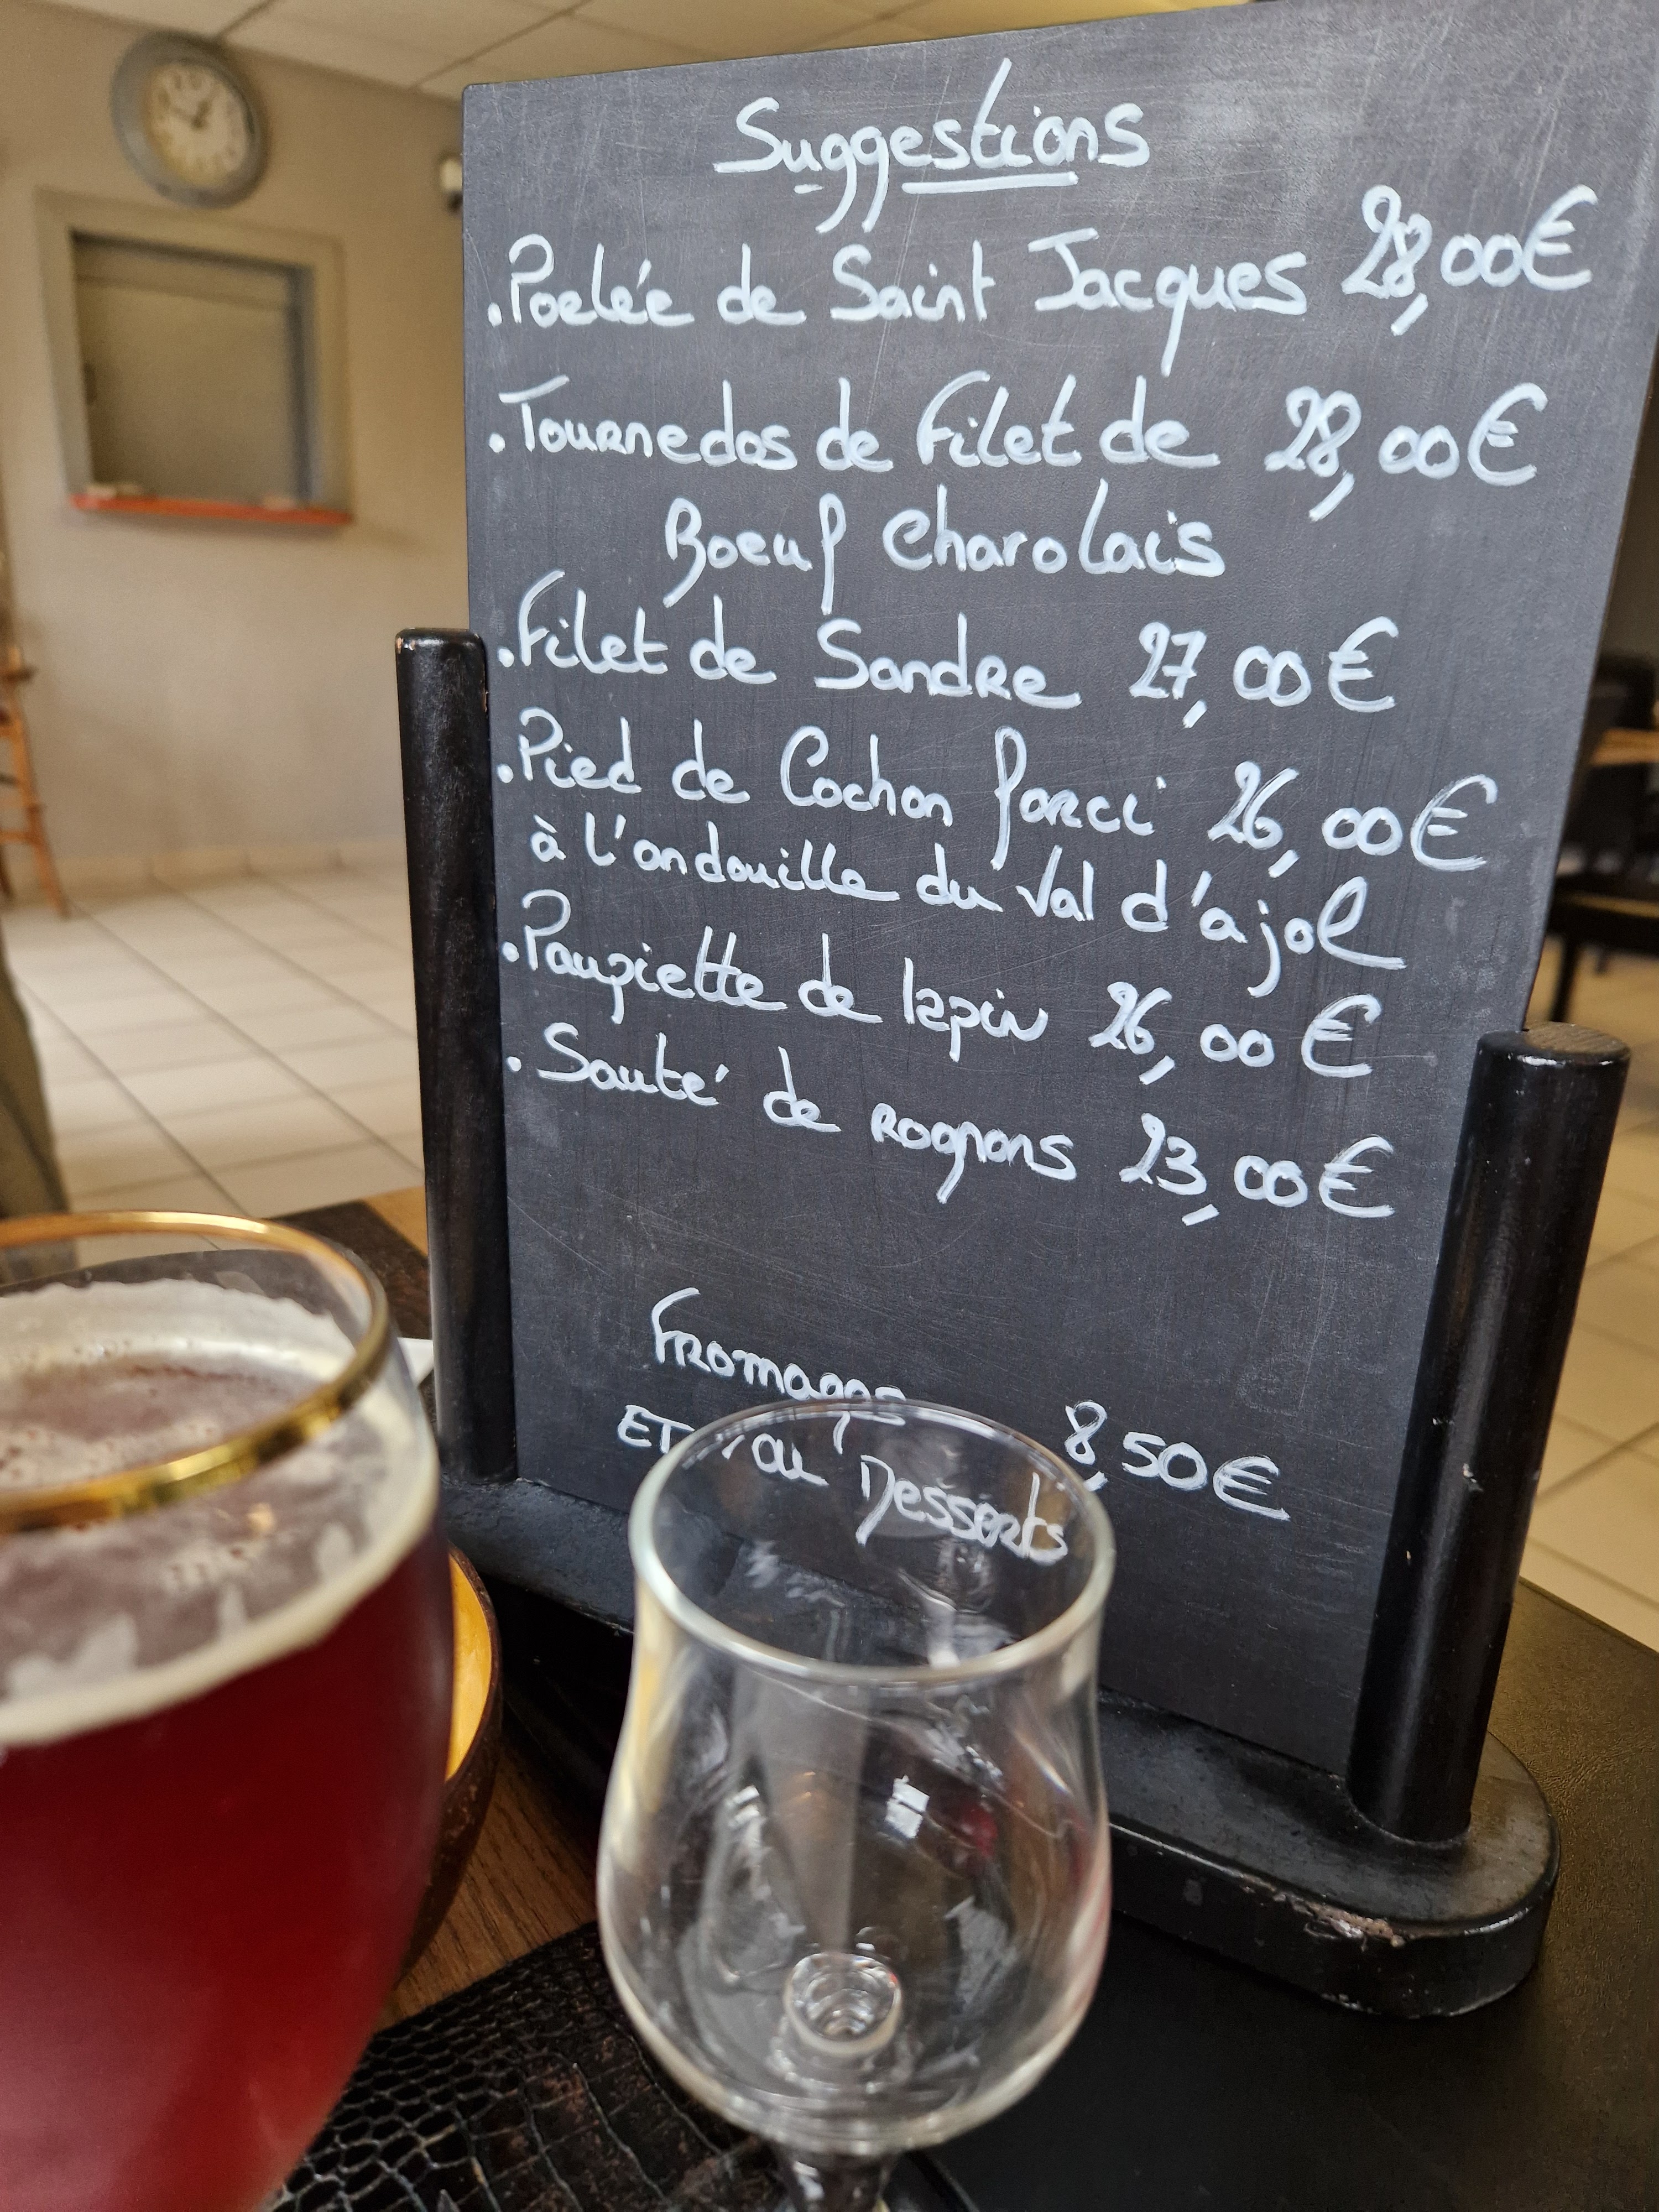 Suggestions
.Poelée de Saint Jacques 28,00€
.Tournedos de Filet de 28,00€
Boeuf Charolais
.Filet de Sandre 27,00€
.Pied de Cochon farci 26,00€
à l'andouille du Val d'ajol
.Paupiette de lapin 26,00€
.Sauté de rognons 23,00€
Fromages
ET / ou Desserts 8,50€